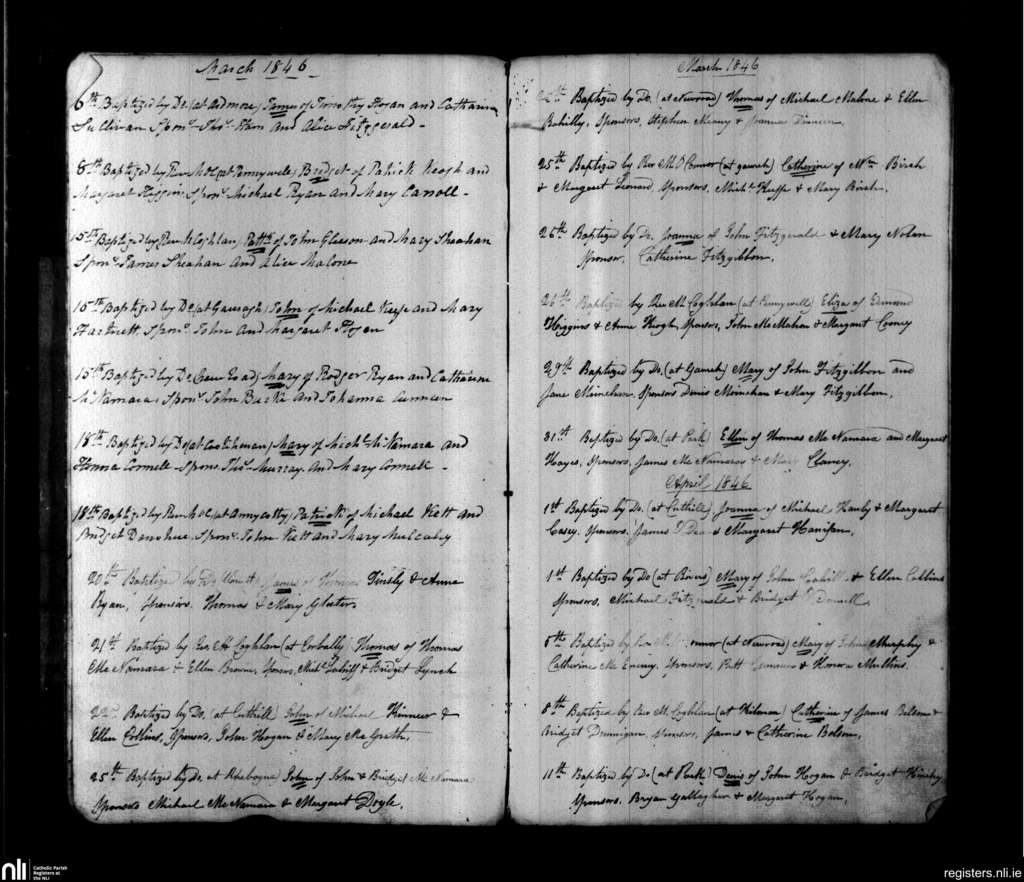 March 1846
6th Baptized by Do. (at Ardmore) James of Timothy Horan and Catharine
Sullivan Sponrs Thos Ham and Alice Fitzgerald -
8th Baptized by Rev M OC (at Pennywell) Bridget of Patrick Keogh and
Margaret Higgins Sponrs Michael Ryan and Mary Carroll -
15th Baptized by Rev M Coghlan, Pattk of John Gleeson and Mary Sheahan
Sponrs James Sheahan and Alice Malone
15th Baptized by Do (at Gareagh) John of Michael Keefe and Mary
Hartnett Sponrs John and Margaret
15th Baptized by Do (New Road) Mary of Rodger Ryan and Catharine
McNamara, Sponrs John Burke and Johanna
18th Baptized by Do (at Coolishenan) Mary of Michl McNamara and
Honna Connell Spons Thos Murray and Mary Connell -
18th Baptized by Rev M OC (at Annycalty) Patrick of Michael Kett and
Bridget Donohue, Sponrs John Kett and Mary Mulcahy
20th Baptized by Do James of Thomas Tinsly & Anne
Ryan, Sponsors, Thomas & Mary Gloster,
21st Baptized by Rev. M Coghlan (at Corbally) Thomas of Thomas
Mc Namara & Ellen Browne, Sponsors, Michl & Bridget Lynch
22nd Baptized by Do. (at Cuthill) John of Michael Kinneer &
Ellen Collins, Sponsors, John Hogan & Mary Mc Grath,
25th Baptized by Do. at Rhebogue, John of John & Bridget Mc Namara
Sponsors Michael Mc Namara & Margaret Doyle.
March 1846
Baptized by Do. (at Newroad) Thomas of Michael Malone & Ellen
Rahilly, Sponsors, Stephen Meany & Joanna
25th Baptized by Rev M.O Connor (at gareagh) Catherine of Wm Birch
& Margaret Leonard, Sponsors, Michl Keeffe & Mary Birch,
26th Baptized by Do. Joanna of John Fitzgerald & Mary Nolan
Sponsor, Catherine Fitzgibbon,
26th Baptized by Rev M. Coghlan (at Pennywell) Eliza of Edmond
Higgins & Anne Keogh, Sponsors, John Mc Mahon & Margaret Cooney
29th Baptized by Do. (at Gareagh) Mary of John Fitzgibbon and
Jane Moinehan, Sponsors Denis Moinehan & Mary Fitzgibbon,
31st Baptized by Do. (at Park) Ellen of Thomas Mc Namara and Margaret
Hayes, Sponsors, James Mc Namara & Mary Clancy,
April 1846
1st Baptized by Do. (at Cuthill) Joanna of Michael Hanly & Margaret
Casey, Sponsors, James O Dea & Margaret Hanifan,
1st Baptized by Do (at Rivers) Mary of John & Ellen Collins
Sponsors, Michael Fitzgerald & Bridget O Donnell,
5th Baptized by Rev M. onnor (at Newroad) Mary of John Murphy &
Catherine Mc Enerny, Sponsors, Patt & Honora Mullins.
8th Baptized by Rev M. Coghlan (at Kilonan) Catherine of James Bolson &
Bridget Donnigan, Sponsors, James & Catherine Bolson,
11th Baptized by Do (at Park) Denis of John Hogan & Bridget
Sponsors, Bryan Gallagher & Margaret Hogan,
nli Catholic Parish
Registers at
the NLI
registers.nli.ie